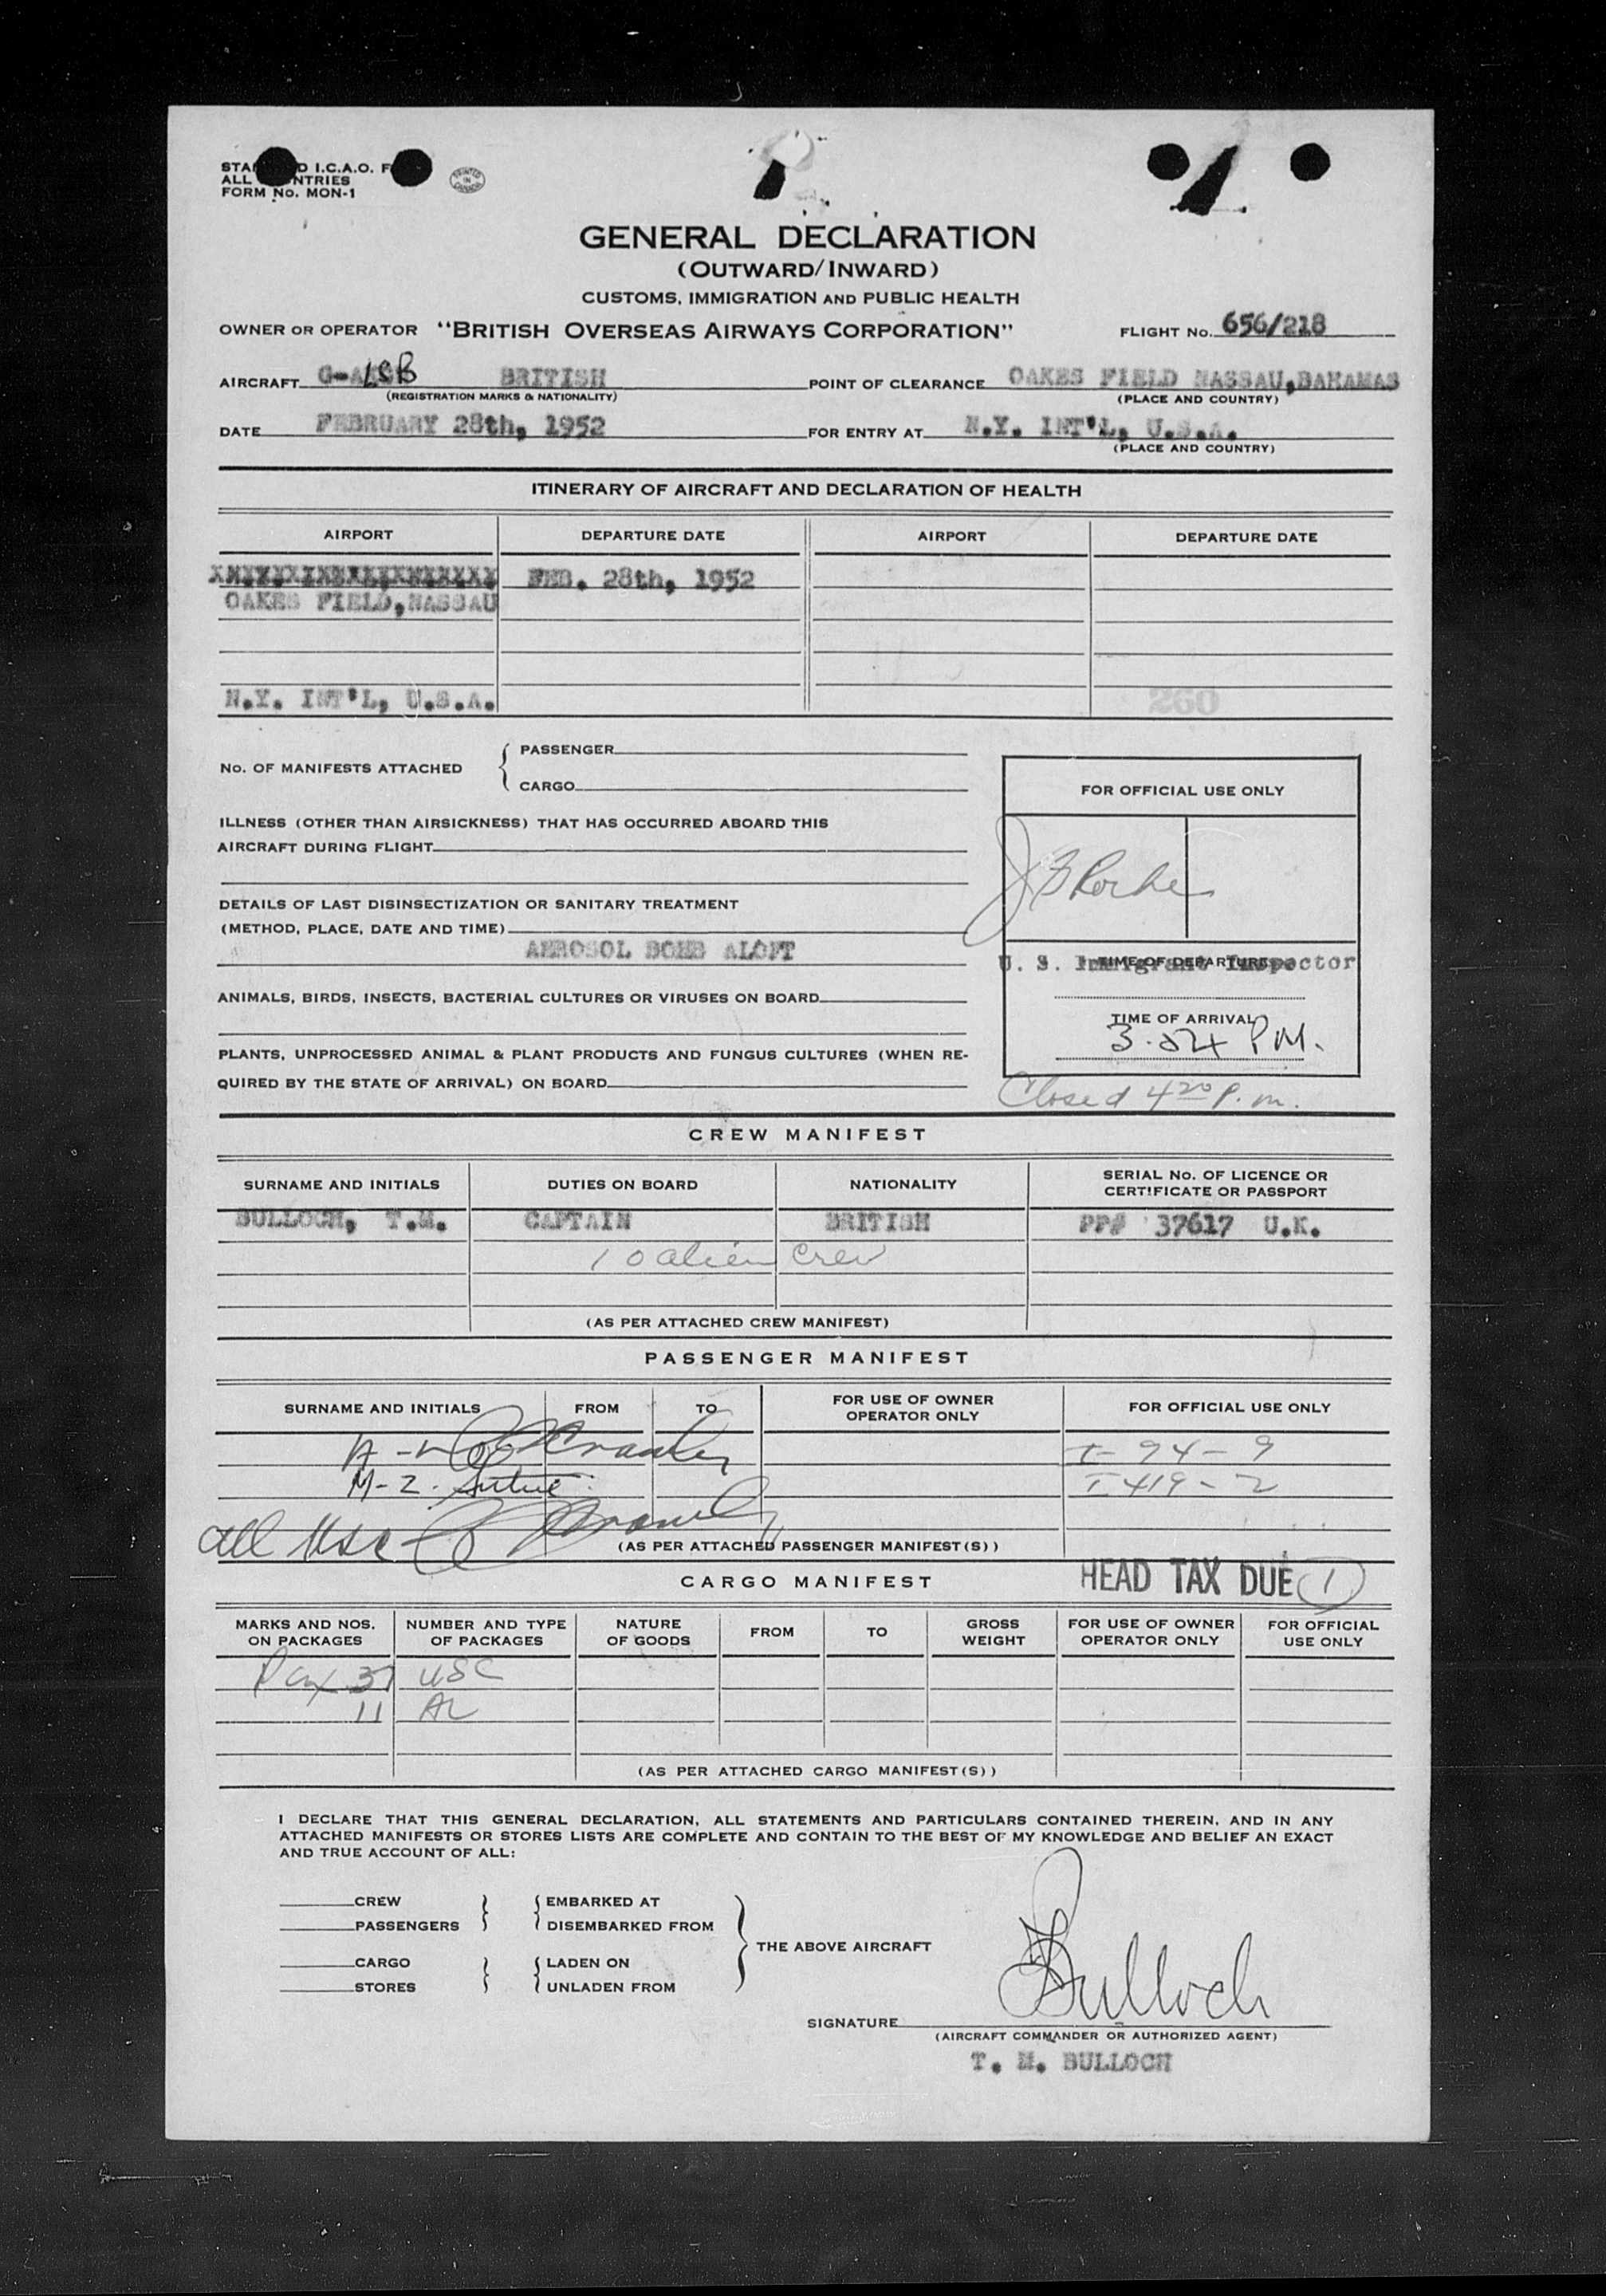 D I.C.A.O.
ALL NTRIES
FORM No. MON-1
PRINTED IN CANADA
GENERAL DECLARATION
(OUTWARD/INWARD)
CUSTOMS, IMMIGRATION AND PUBLIC HEALTH
OWNER OR OPERATOR "BRITISH OVERSEAS AIRWAYS CORPORATION" FLIGHT No. 656/218
AIRCRAFT BRITISH POINT OF CLEARANCE OAKES FIELD NASSAU, BAHAMAS
(REGISTRATION MARKS & NATIONALITY) (PLACE AND COUNTRY)
DATE FEBRUARY 28th, 1952 FOR ENTRY AT N.Y. INT'L, U.S.A.
(PLACE AND COUNTRY)
ITINERARY OF AIRCRAFT AND DECLARATION OF HEALTH
AIRPORT DEPARTURE DATE AIRPORT DEPARTURE DATE
FEB. 28th, 1952
OAKES FIELD, NASSAU
N.Y. INT'L, U.S.A. 260
No. OF MANIFESTS ATTACHED { PASSENGER
CARGO
FOR OFFICIAL USE ONLY
ILLNESS (OTHER THAN AIRSICKNESS) THAT HAS OCCURRED ABOARD THIS
AIRCRAFT DURING FLIGHT
DETAILS OF LAST DISINSECTIZATION OR SANITARY TREATMENT
(METHOD, PLACE, DATE AND TIME)
AEROSOL BOMB ALOFT
U. S. Immigrant Inspector
TIME OF DEPARTURE
ANIMALS, BIRDS, INSECTS, BACTERIAL CULTURES OR VIRUSES ON BOARD
TIME OF ARRIVAL
3.24 PM.
PLANTS, UNPROCESSED ANIMAL & PLANT PRODUCTS AND FUNGUS CULTURES (WHEN RE-
QUIRED BY THE STATE OF ARRIVAL) ON BOARD
Closed 4 20 P. m.
CREW MANIFEST
SURNAME AND INITIALS DUTIES ON BOARD NATIONALITY SERIAL No. OF LICENCE OR
CERTIFICATE OR PASSPORT
BULLOCH, T.M. CAPTAIN BRITISH PP# 37617 U.K.
10 alien crew
(AS PER ATTACHED CREW MANIFEST)
PASSENGER MANIFEST
SURNAME AND INITIALS FROM TO FOR USE OF OWNER
OPERATOR ONLY FOR OFFICIAL USE ONLY
I-94-9
M-2. I 419-2
all USC
(AS PER ATTACHED PASSENGER MANIFEST(S))
CARGO MANIFEST HEAD TAX DUE 1
MARKS AND NOS.
ON PACKAGES NUMBER AND TYPE
OF PACKAGES NATURE
OF GOODS FROM TO GROSS
WEIGHT FOR USE OF OWNER
OPERATOR ONLY FOR OFFICIAL
USE ONLY
Pax 37 USC
11 AL
(AS PER ATTACHED CARGO MANIFEST(S))
I DECLARE THAT THIS GENERAL DECLARATION, ALL STATEMENTS AND PARTICULARS CONTAINED THEREIN, AND IN ANY
ATTACHED MANIFESTS OR STORES LISTS ARE COMPLETE AND CONTAIN TO THE BEST OF MY KNOWLEDGE AND BELIEF AN EXACT
AND TRUE ACCOUNT OF ALL:
CREW EMBARKED AT
PASSENGERS DISEMBARKED FROM
THE ABOVE AIRCRAFT
CARGO LADEN ON
STORES UNLADEN FROM
Bulloch
SIGNATURE
(AIRCRAFT COMMANDER OR AUTHORIZED AGENT)
T. M. BULLOCH